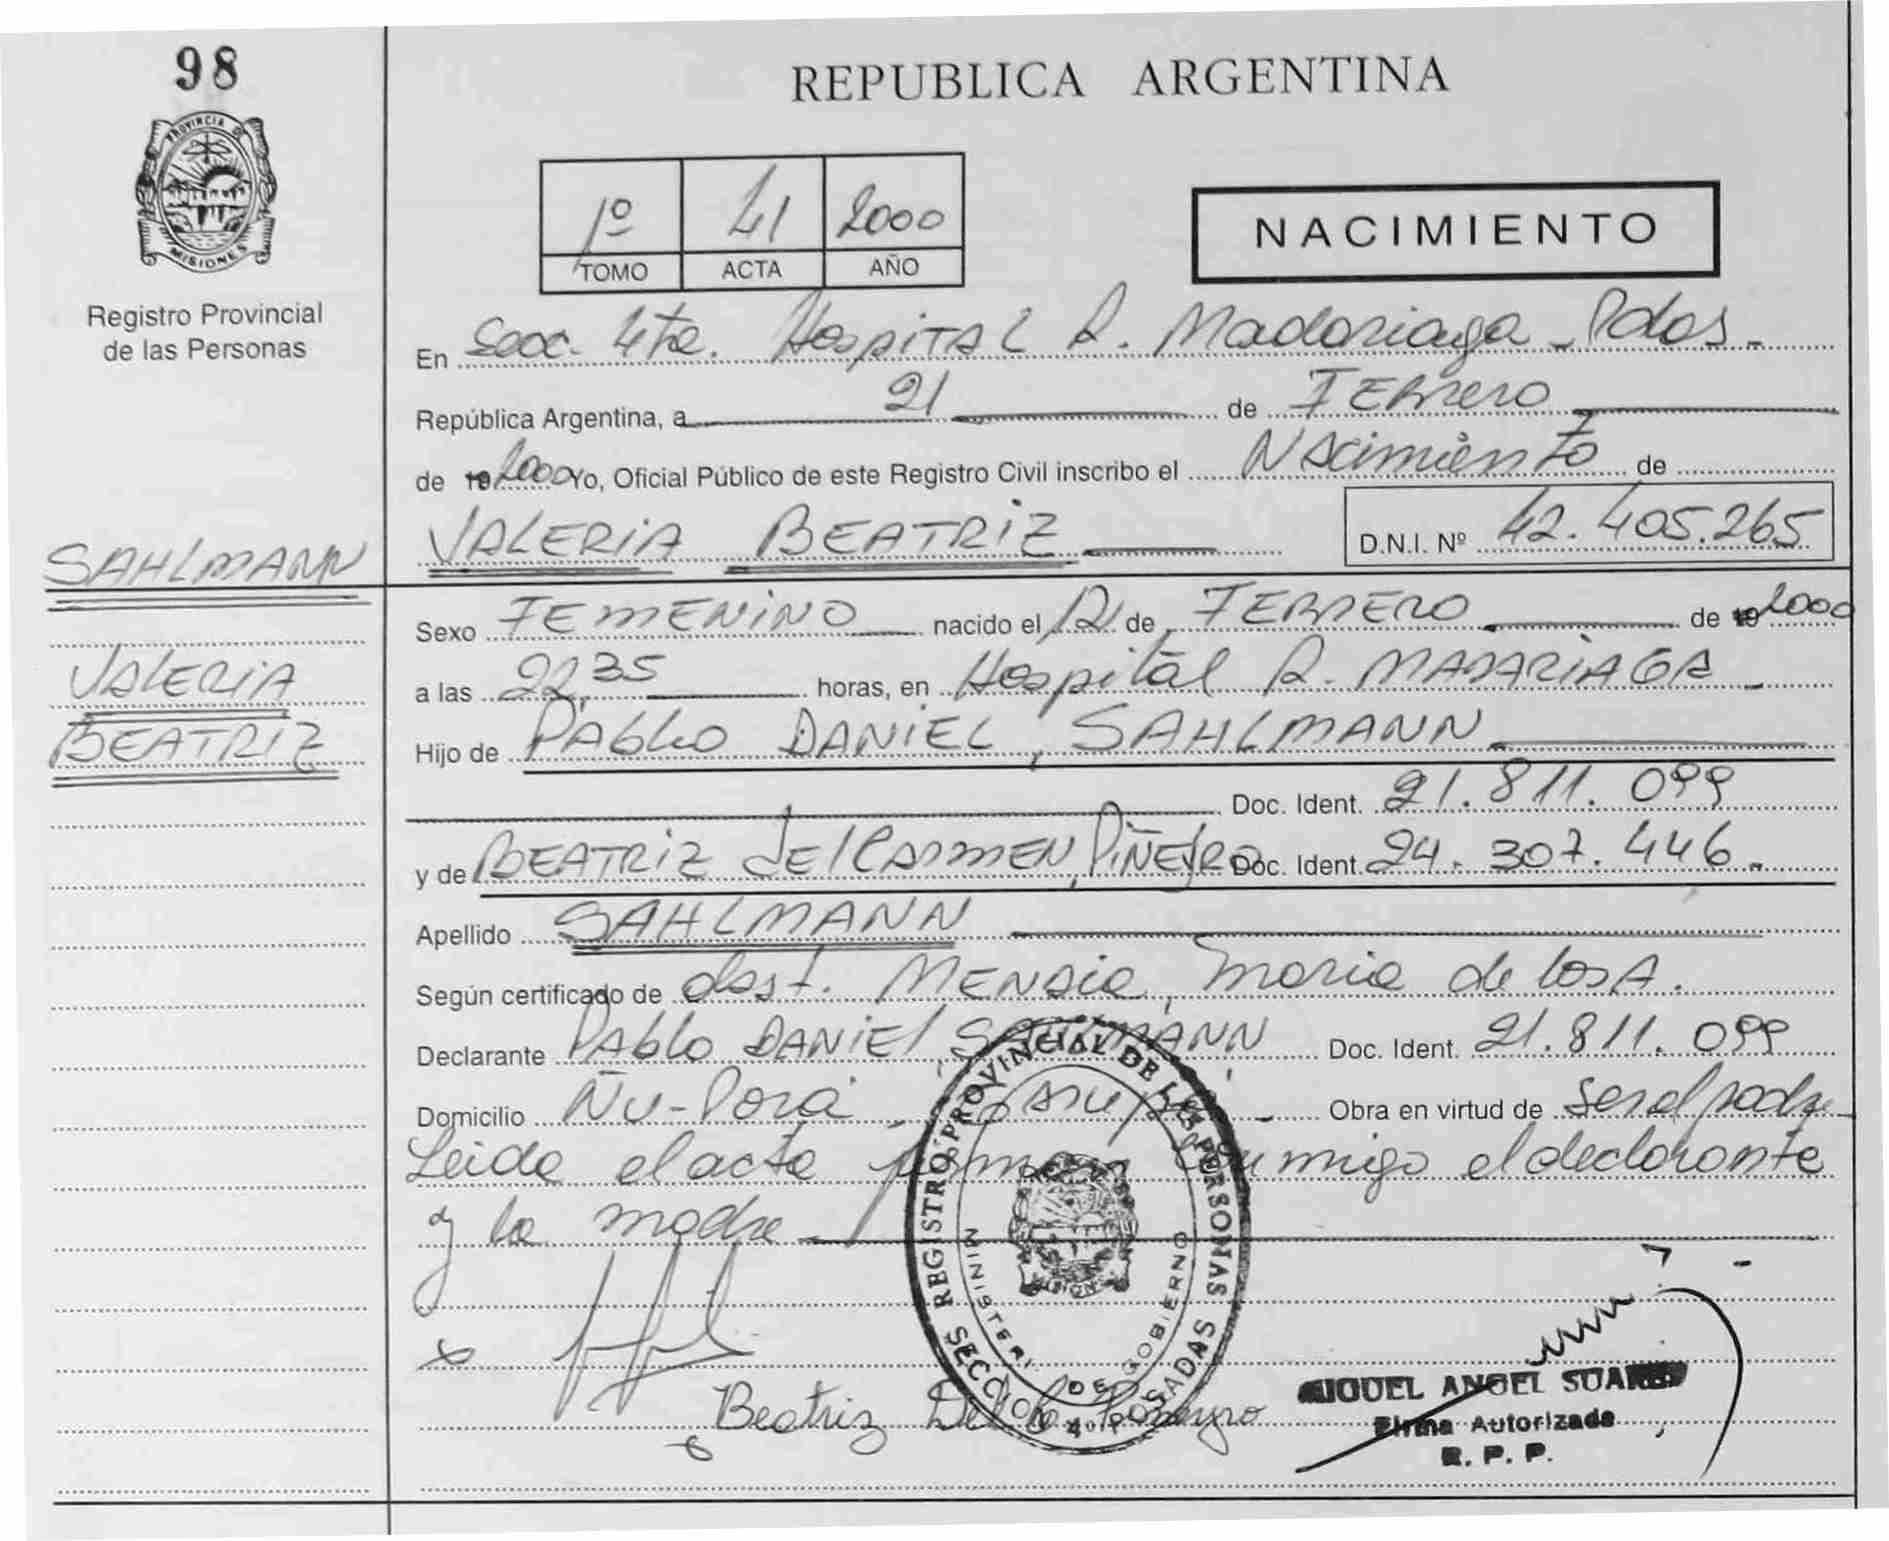 98
PROVINCIA DE
MISIONES
Registro Provincial
de las Personas
SAHLMANN
VALERIA
BEATRIZ
REPUBLICA ARGENTINA
1º 41 2000
TOMO ACTA AÑO
NACIMIENTO
En Secc. 4ta. Hospital R. Madariaga - Pdas -
República Argentina, a 21 de Febrero
de 19 2000 Yo, Oficial Público de este Registro Civil inscribo el Nacimiento de
VALERIA BEATRIZ D.N.I. Nº 42.405.265
Sexo FEMENINO nacido el de FEBRERO de 19 2000
a las 22,35 horas, en Hospital R. MADARIAGA -
Hijo de PABLO DANIEL, SAHLMANN
Doc. Ident. 21.811.099
y de BEATRIZ del CARMEN, PIÑEYRO Doc. Ident. 24.307.446.
Apellido SAHLMANN
Según certificado de obst. MENDIA, Maria de los A.
Declarante PABLO DANIEL, SAHLMANN Doc. Ident. 21.811.099
Domicilio Ñu-Porá, Garupá - Obra en virtud de ser el padre
Leida el acta firman conmigo el declarante
y la madre
REGISTRO PROVINCIAL DE LAS PERSONAS
MINISTERIO DE GOBIERNO
SECCION 4º POSADAS
Beatriz Del C. Piñeyro
MIGUEL ANGEL SUAREZ
Firma Autorizada
R. P. P.